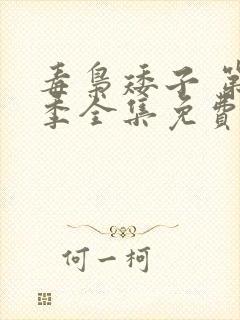 毒枭矮子 第
季全集免费
何一柯